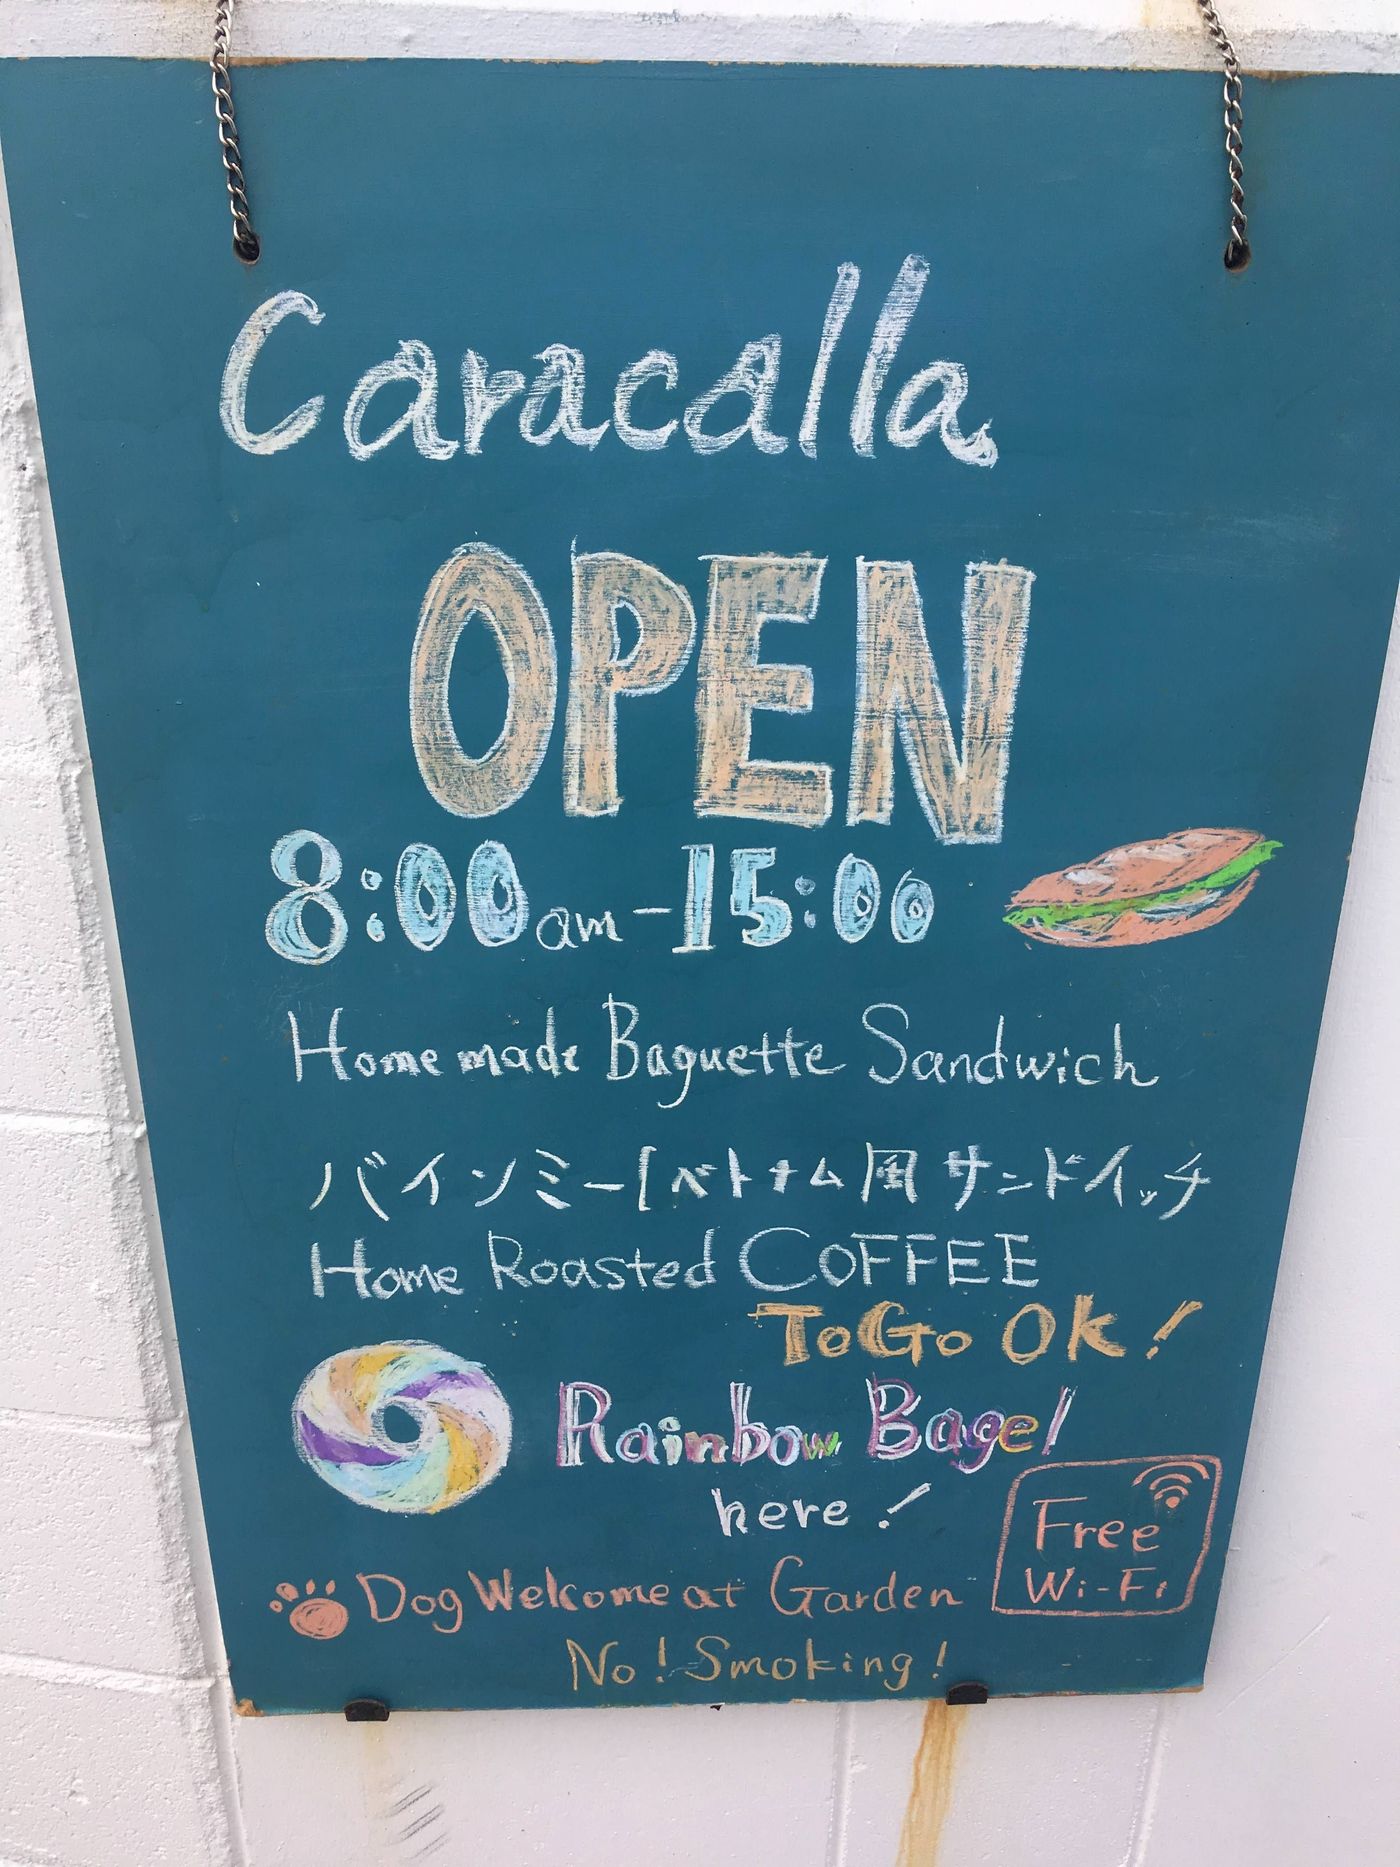 Caracalla
OPEN
8:00am-15:00
Home made Baguette Sandwich
バインミー[ベトナム風 サンドイッチ
Home Roasted COFFEE
To Go OK!
Rainbow Bagel
here!
Free
Wi-Fi
Dog Welcome at Garden
No! Smoking!